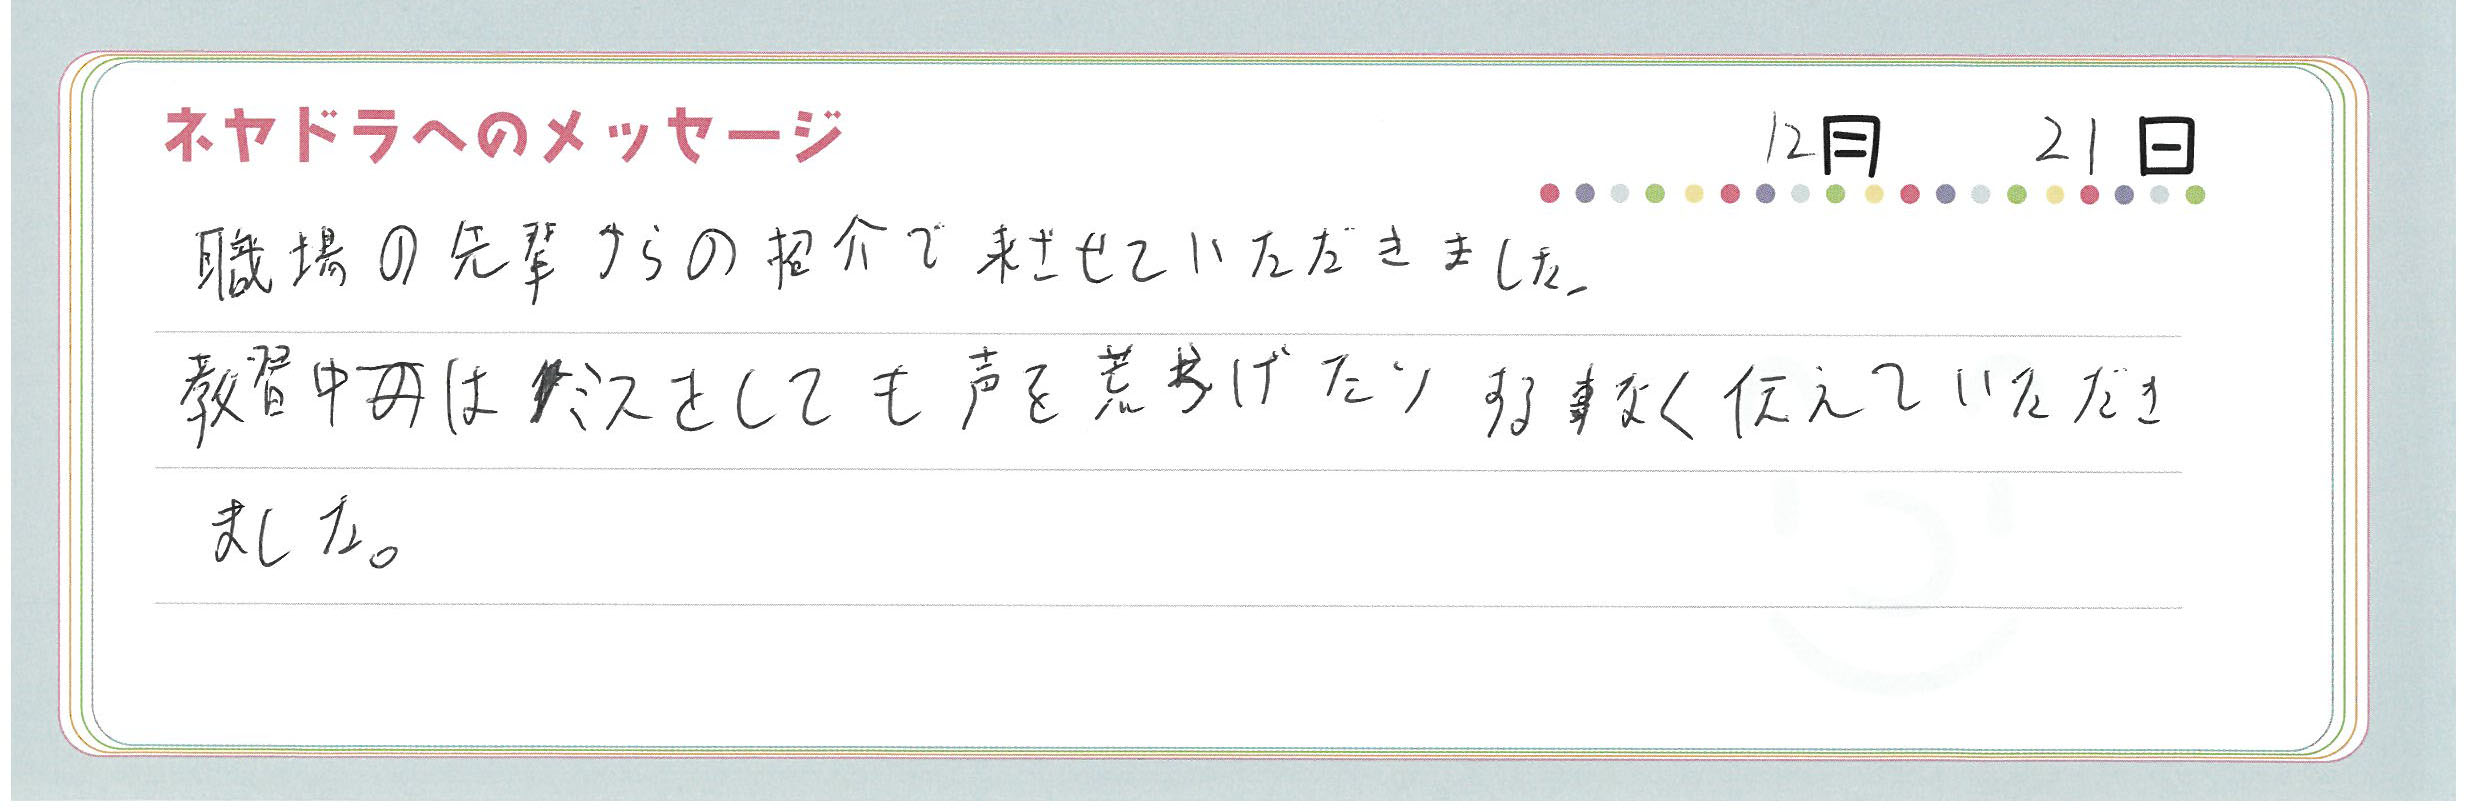 ネヤドラへのメッセージ
12月 21日
職場の先輩からの紹介で来させていただきました、
教習中は ミスをしても声を荒らげたりする事なく伝えていただき
ました。